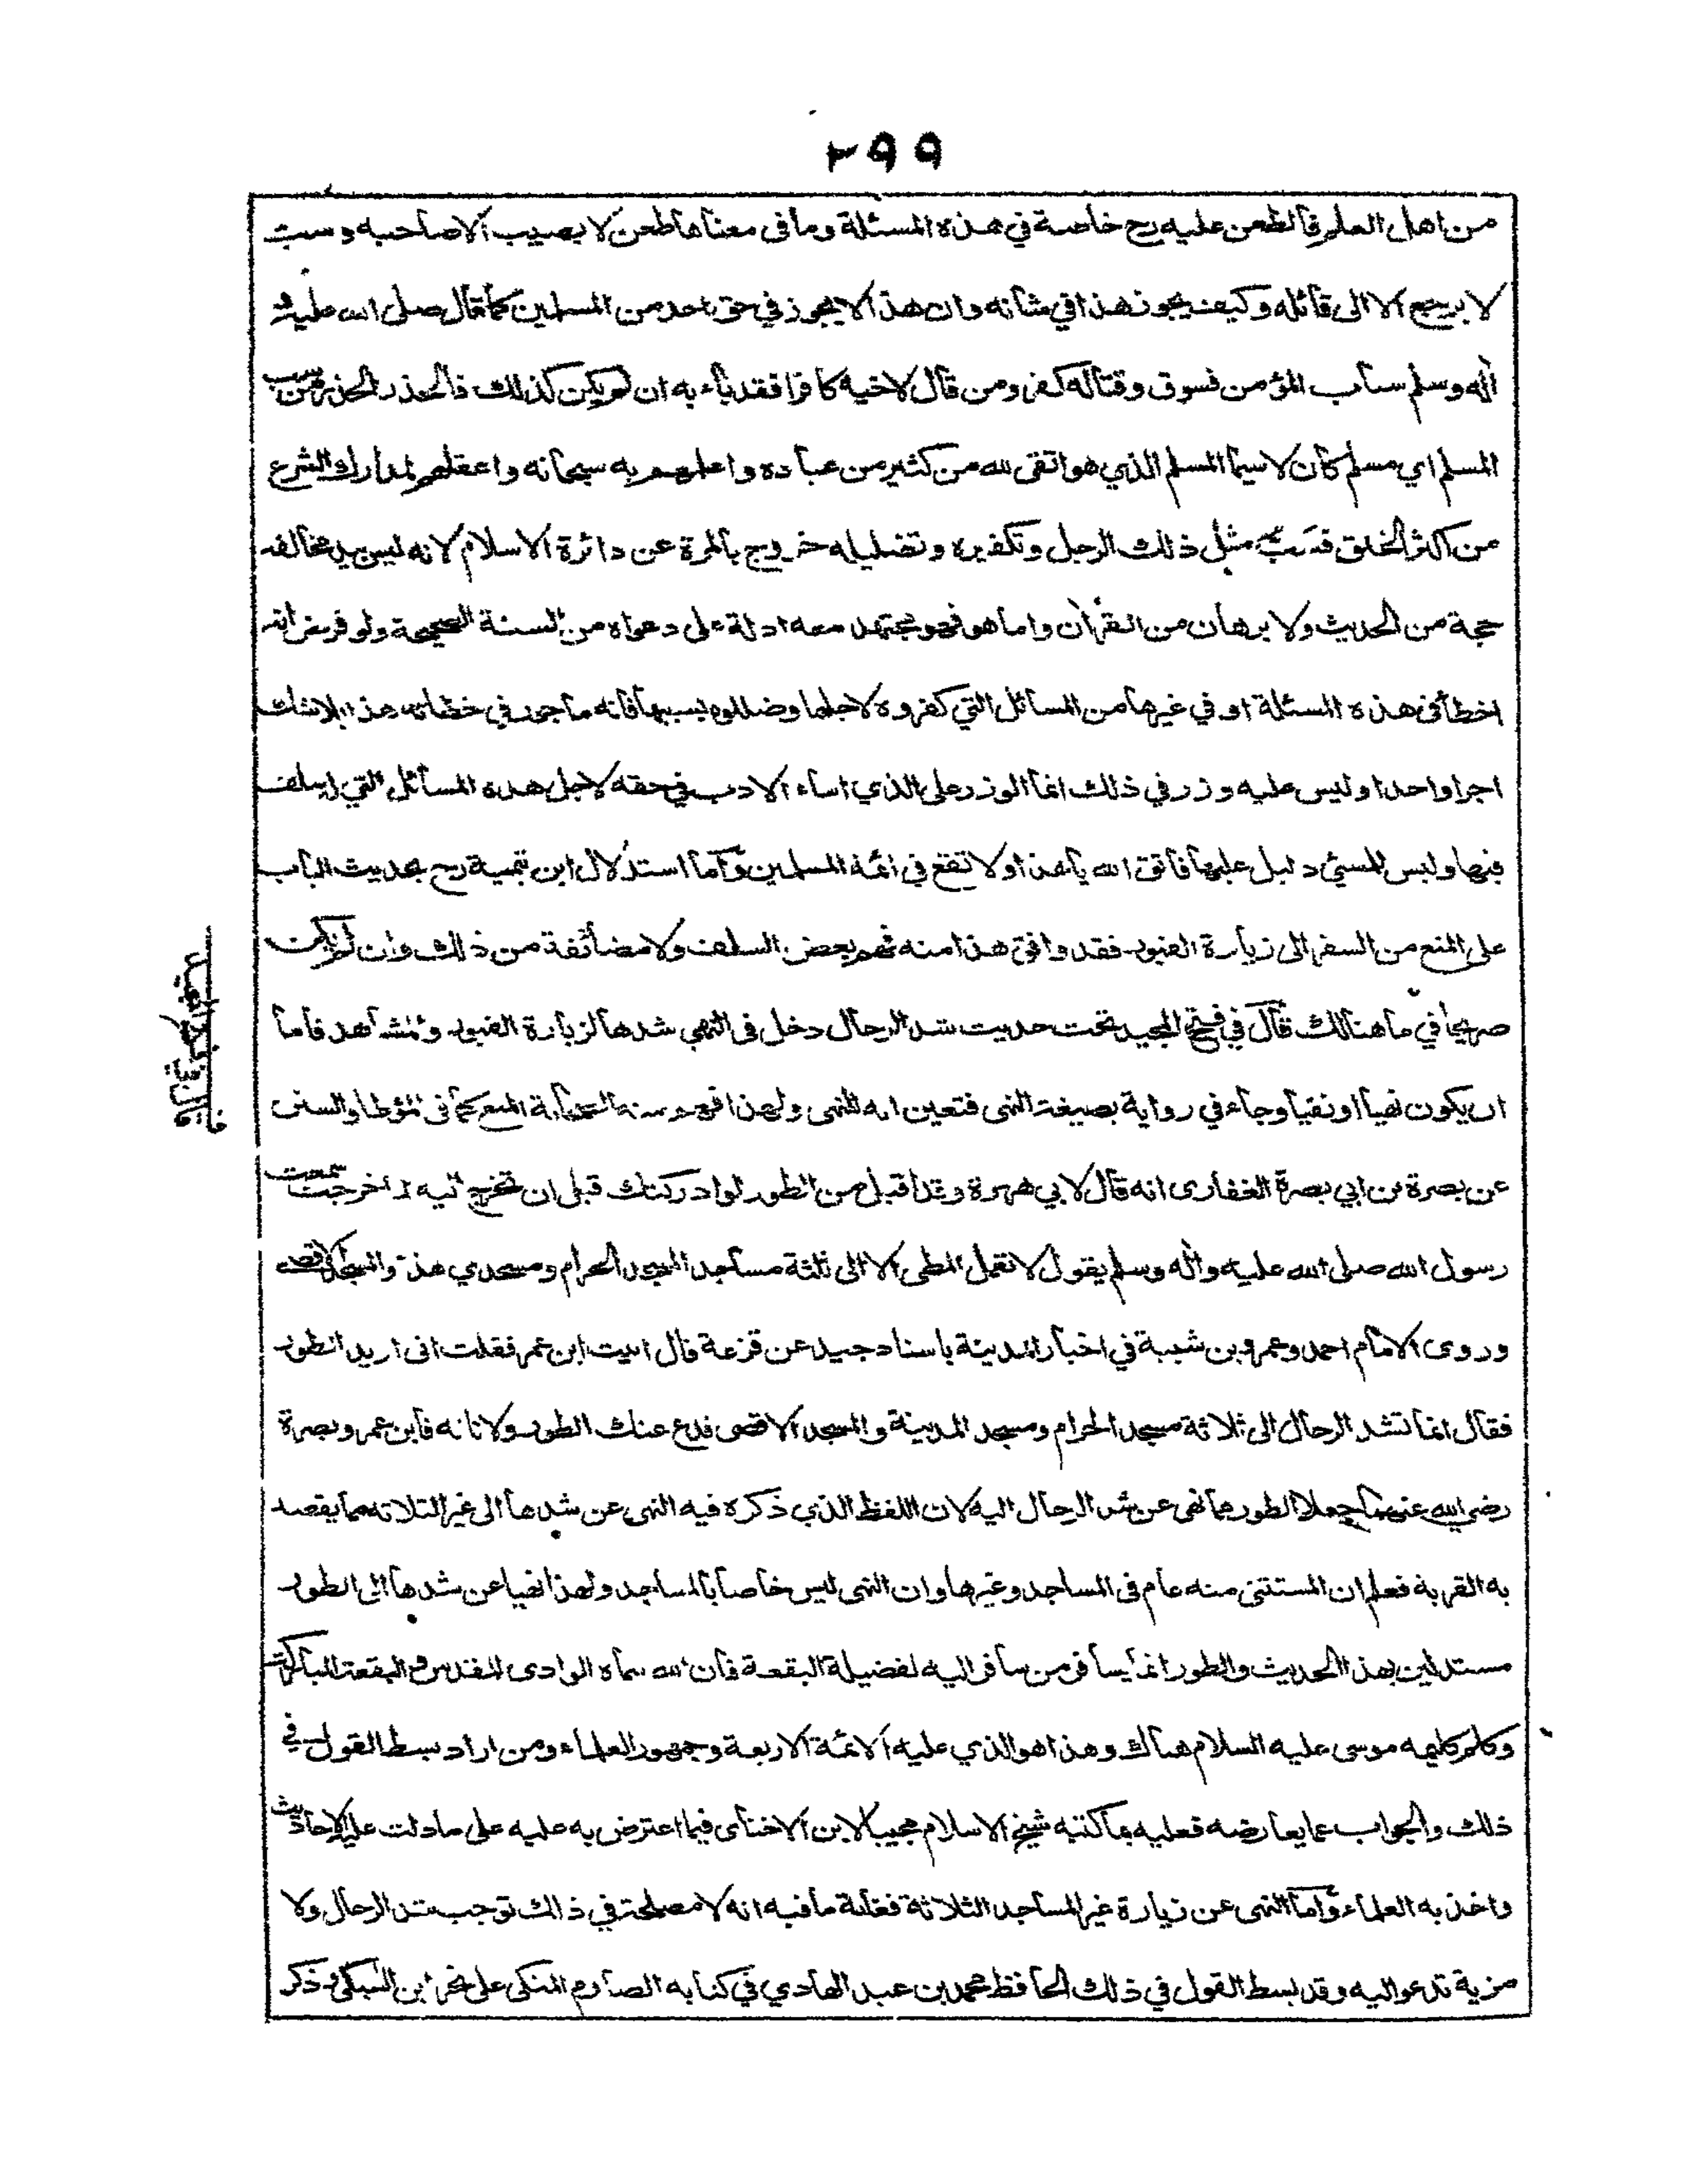 ٢٩٩
من اهل العلم في الطعن عليه رح خاصة في هذه المسئلة وما في معناها طعن لا يصيب الا صاحبه وسب
لا يرجع الا الى قائله وكيف يجوز هذا في شأنه وان هذا لا يجوز في حق احد من المسلمين كما قال صلى الله عليه و
آله وسلم سباب المؤمن فسوق وقتاله كفر ومن قال لاخيه كافرا فقد باء به ان لم يكن كذلك فالحذر الحذر من سب
المسلم اي مسلم كان لا سيما المسلم الذي هو اتقى لله من كثير من عباده واعلمهم به سبحانه واعقلهم لمدارك الشرع
من اكثر الخلق فسَبّ مثل ذلك الرجل وتكفيره وتضليله خروج بالمرة عن دائرة الاسلام لانه ليس بيد مخالفه
حجة من الحديث ولا برهان من القرآن واما هو فهو مجتهد معه ادلة على دعواه من السنة الصحيحة ولو فرض انه
اخطأ في هذه المسئلة او في غيرها من المسائل التي كفروه لاجلها وضللوه بسببها فانه مأجور في خطائه هذا بلا شك
اجرا واحدا وليس عليه وزر في ذلك انما الوزر على الذي اساء الادب في حقه لاجل هذه المسائل التي له سلف
فيها وليس للمسئ دليل عليها فاتق الله يا هذا ولا تقع في ائمة المسلمين وآما استدلال ابن تيمية رح بحديث الباب
على المنع من السفر الى زيارة القبور فقد وافق هذا منه فهم بعض السلف ولا مضائقة من ذلك وان لم يكن
صريحا في ما هنالك قال في فتح المجيد تحت حديث شد الرحال دخل في النهي شدها لزيارة القبور والمشاهد فاما
ان يكون نهيا او نفيا وجاء في رواية بصيغة النهى فتعين انه للنهى ولهذا فهم منه الصحابة المنع كما في الموطا والسنن
عن بصرة بن ابي بصرة الغفارى انه قال لابي هريرة وقد اقبل من الطور لو ادركتك قبل ان تخرج اليه لما خرجت سمعت
رسول الله صلى الله عليه وآله وسلم يقول لا تعمل المطى الا الى ثلثة مساجد المسجد الحرام ومسجدي هذا والمسجد الاقصى
وروى الامام احمد وعمرو بن شيبة في اخبار المدينة باسناد جيد عن قزعة قال اتيت ابن عمر فقلت انى اريد الطور
فقال انما تشد الرحال الى ثلاثة مسجد الحرام ومسجد المدينة والمسجد الاقصى فدع عنك الطور ولا تاته فابن عمر وبصرة
رضي الله عنهما جعلا الطور مما نهى عن شد الرحال اليه لان اللفظ الذي ذكره فيه النهى عن شدها الى غير الثلاثة مما يقصد
به القربة فعلم ان المستثنى منه عام في المساجد وغيرها وان النهى ليس خاصا بالمساجد ولهذا نهيا عن شدها الى الطور
مستدلين بهذا الحديث والطور انما يسافر من سافر اليه لفضيلة البقعة فان الله سماه الوادى المقدس والبقعة المباركة
وكلم كليمه موسى عليه السلام هناك وهذا هو الذي عليه الائمة الاربعة وجمهور العلماء ومن اراد بسط القول في
ذلك والجواب عما يعارضه فعليه بما كتبه شيخ الاسلام مجيبا لابن الاخنائى فيما اعترض به عليه على ما دلت عليه الاحاديث
واخذ به العلماء وآما النهى عن زيارة غير المساجد الثلاثة فغاية ما فيه انه لا مصلحة في ذلك توجب شد الرحال ولا
مزية تدعو اليه وقد بسط القول في ذلك الحافظ محمد بن عبد الهادي في كتابه الصارم المنكى على نحر ابن السبكى وذكر